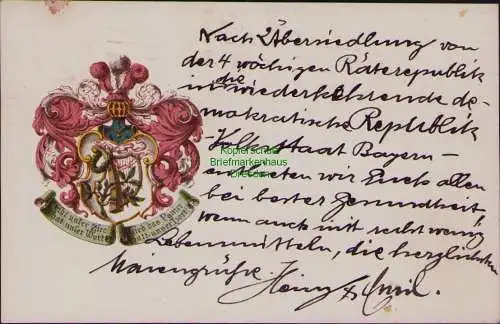 Nach Übersiedlung von
der 4 wöchigen Räterepublik
in die wiederkehrende de-
mokratische Republik
Volksstaat Bayern -
entbieten wir Euch allen
bei bester Gesundheit
wenn auch mit recht wenig
Lebensmitteln, die herzlichsten
Maiengrüße.
Kopierschutz
Briefmarkenhaus
Dresden
unser
unser Wort